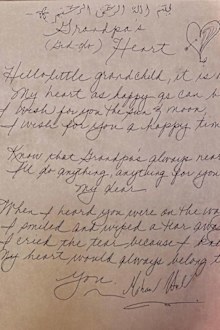 بسم الله الرحمن الرحيم
Grandpa's
(Sad-do) Heart
Hello little grandchild, it is
My heart as happy as can b
I wish for you the sun & moon,
I wish for you a happy time
Know that Grandpa's always near
I'll do anything, anything for you
My dear
When I heard you were on the wa
I smiled and wiped a tear awa
I cried the tear because I
My heart would always belong t
You.